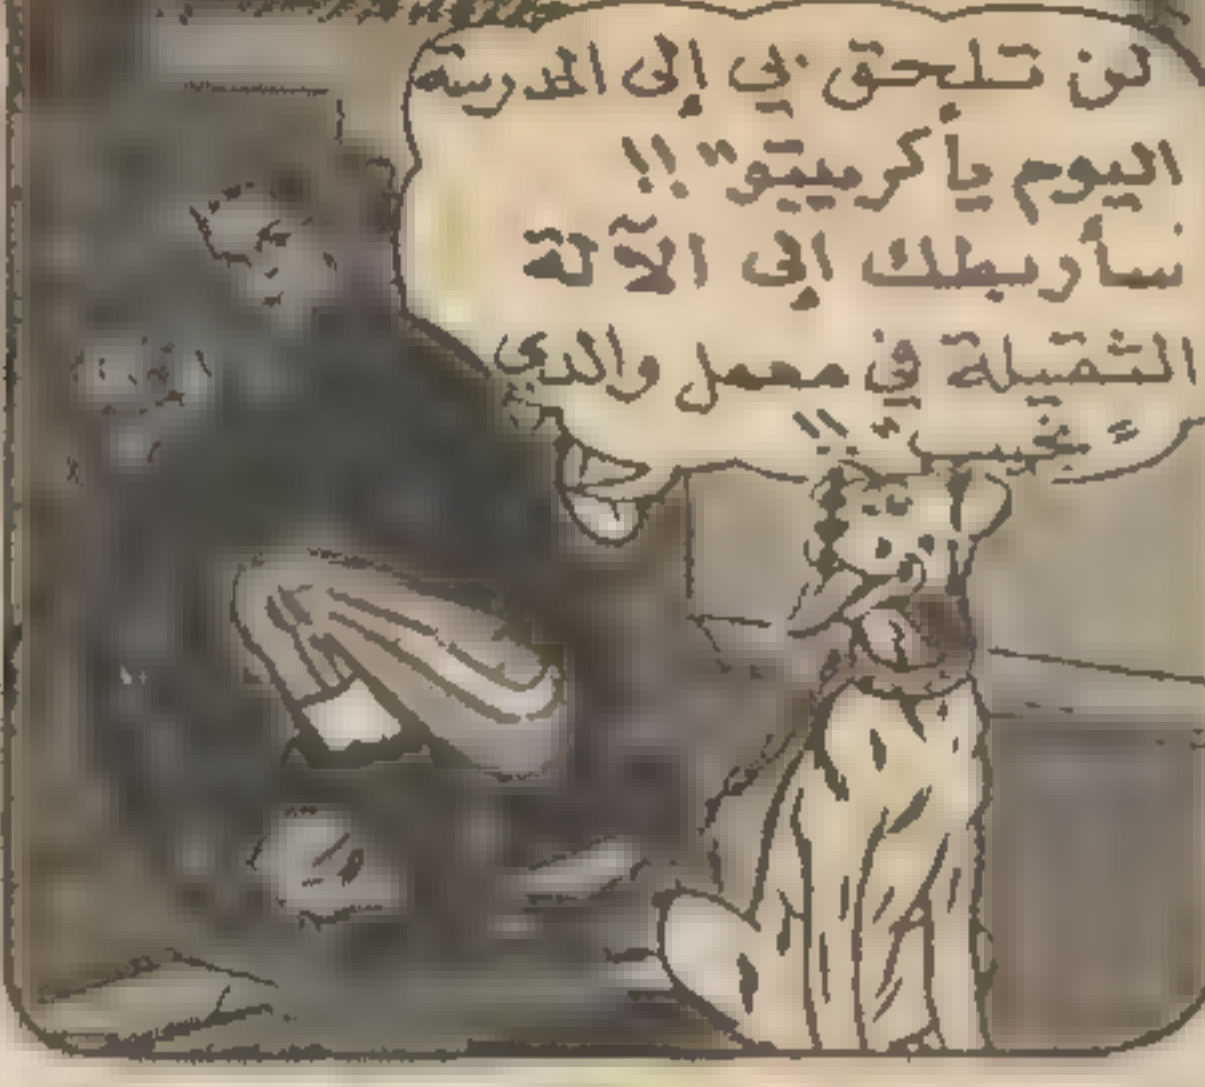 لن تلحق بي إلى المدرسة
اليوم يا كربيتو"!!
سأربطك إلى الآلة
الثقيلة في معمل والدي